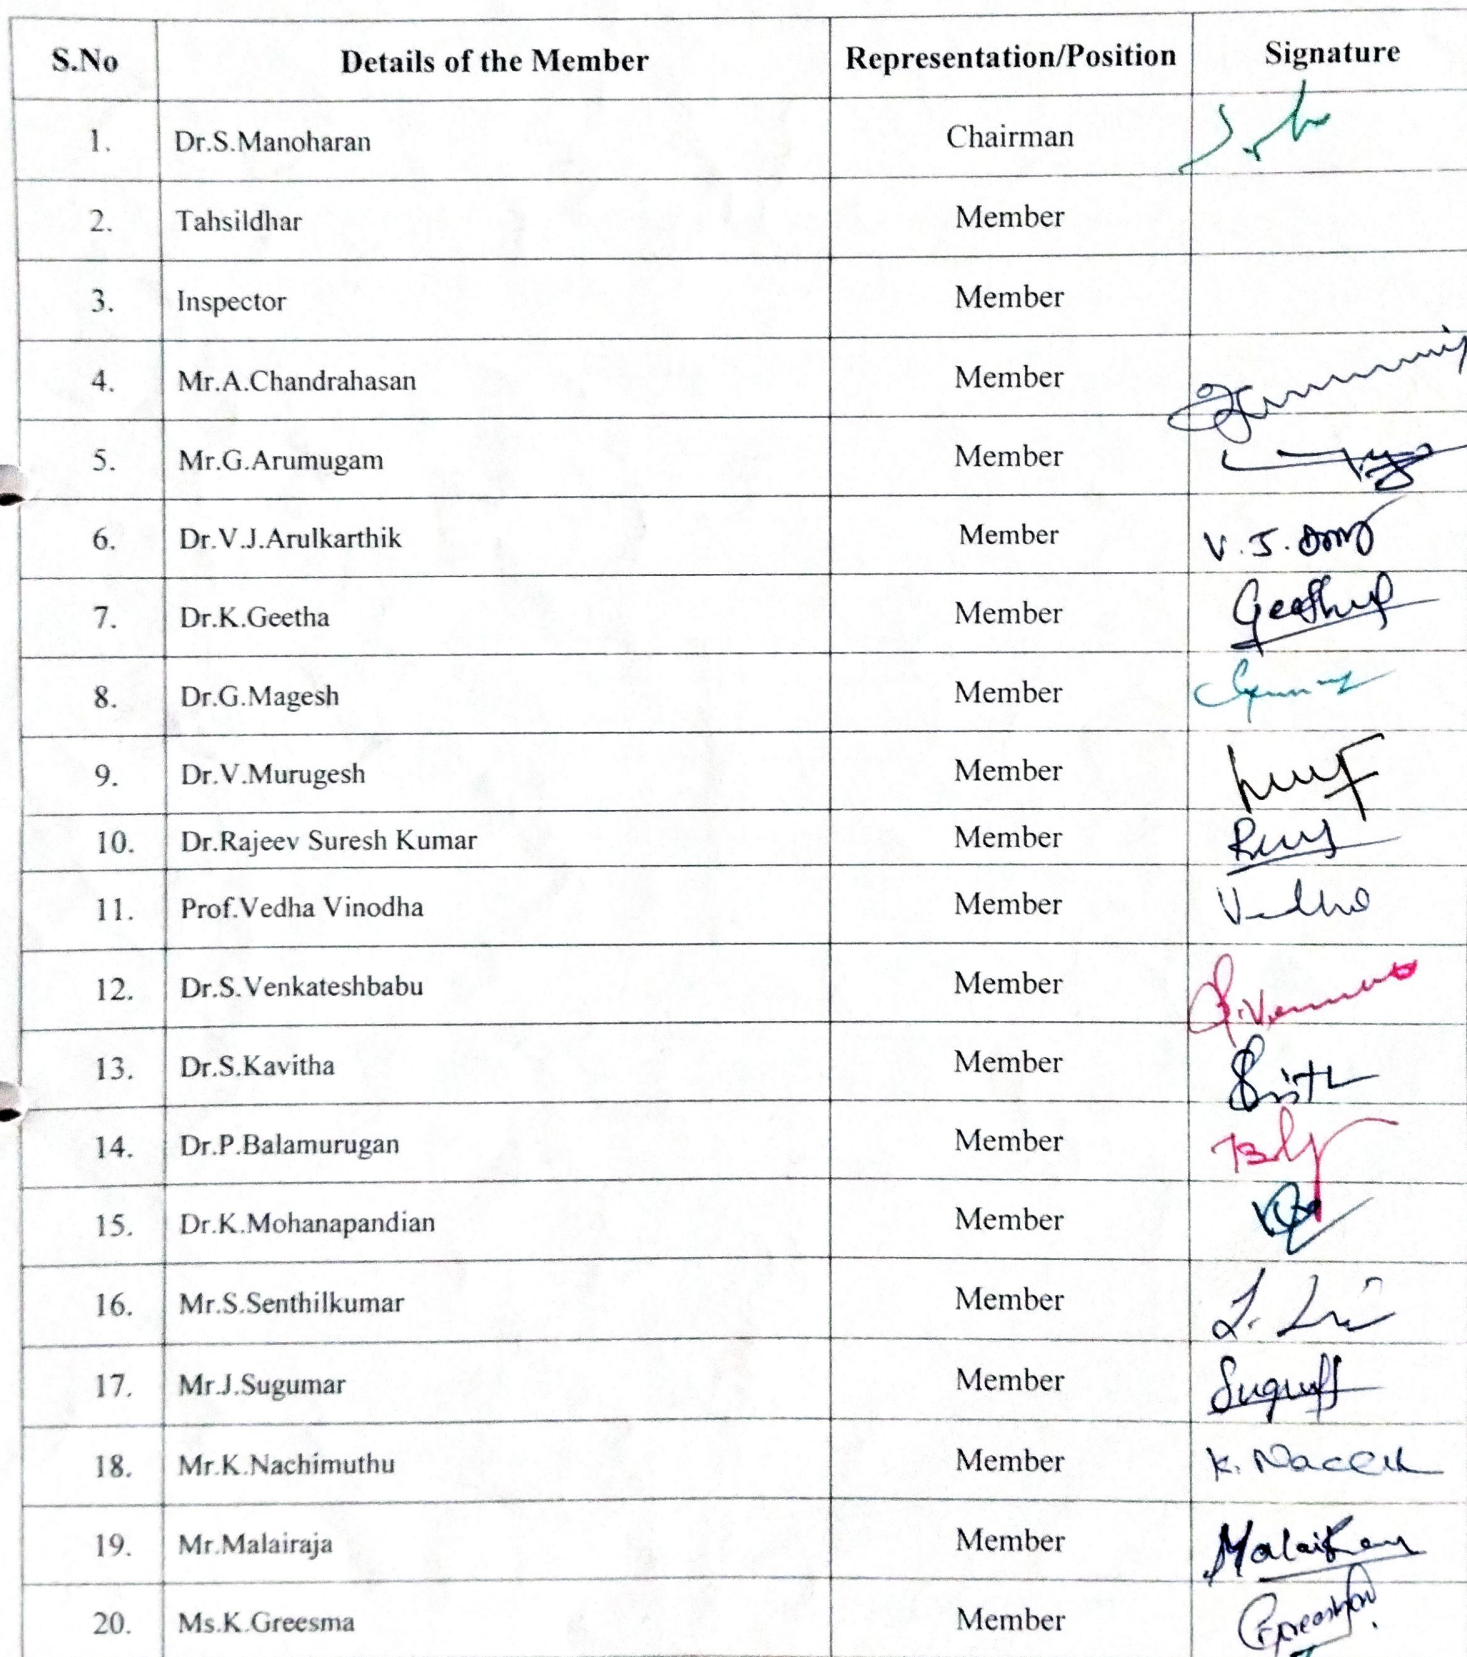 S.No Details of the Member Representation/Position Signature
1. Dr.S.Manoharan Chairman
2. Tahsildhar Member
3. Inspector Member
4. Mr.A.Chandrahasan Member
5. Mr.G.Arumugam Member
6. Dr.V.J.Arulkarthik Member V.J.
7. Dr.K.Geetha Member
8. Dr.G.Magesh Member
9. Dr.V.Murugesh Member
10. Dr.Rajeev Suresh Kumar Member
11. Prof.Vedha Vinodha Member
12. Dr.S.Venkateshbabu Member
13. Dr.S.Kavitha Member
14. Dr.P.Balamurugan Member
15. Dr.K.Mohanapandian Member
16. Mr.S.Senthilkumar Member
17. Mr.J.Sugumar Member
18. Mr.K.Nachimuthu Member K.
19. Mr.Malairaja Member
20. Ms.K.Greesma Member